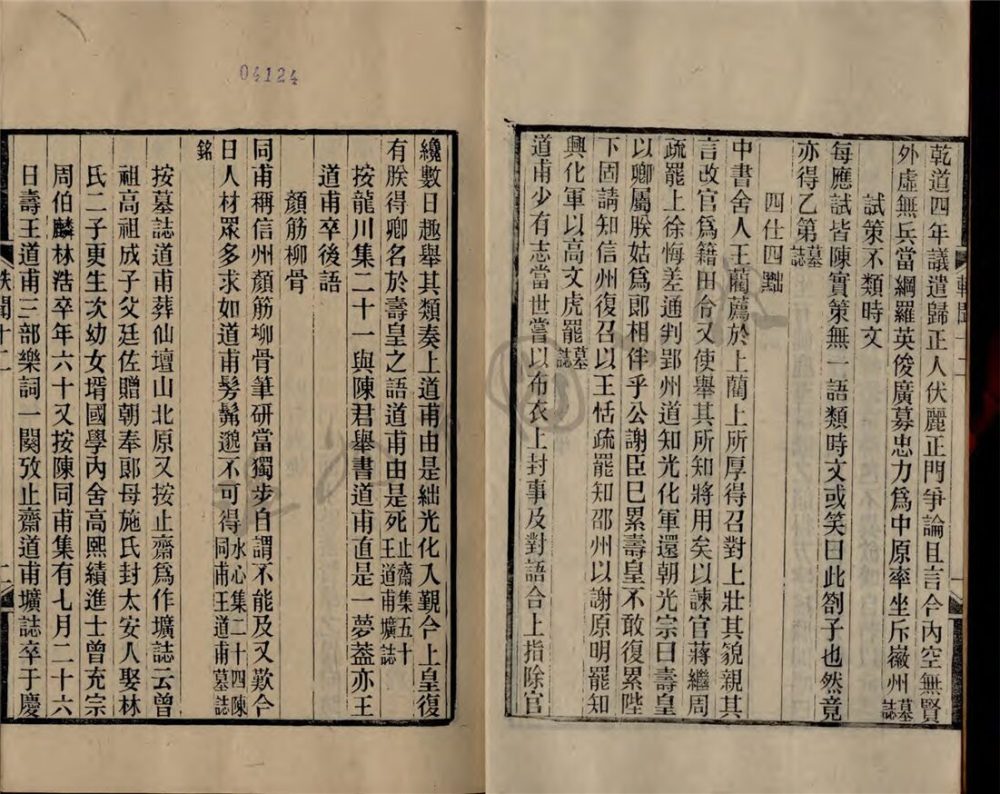 乾道四年議遣歸正人伏麗正門爭論且言今內空無賢
外虛無兵當綱羅英俊廣募忠力爲中原率坐斥嶶州墓誌
試策不類時文
每應試皆陳實策無一語類時文或笑曰此劄子也然竟
亦得乙第墓誌
四仕四黜
中書舍人王藺薦於上藺上所厚得召對上壯其貌親其
言改官爲籍田令又使舉其所知將用矣以諫官蔣繼周
疏罷上徐悔差通判郢州道知光化軍還朝光宗曰壽皇
以卿屬朕姑爲郎相伴乎公謝臣巳累壽皇不敢復累陛
下固請知信州復召以王恬疏罷知邵州以謝原明罷知
興化軍以高文虎罷墓誌
道甫少有志當世嘗以布衣上封事及對語合上指除官
纔數日趣舉其類奏上道甫由是絀光化入覲今上皇復
有朕得卿名於壽皇之語道甫由是死止齋集五十王道甫壙誌
按龍川集二十一與陳君舉書道甫直是一夢葢亦王
道甫卒後語
顏筋柳骨
同甫稱信州顏筋柳骨筆硏當獨步自謂不能及又歎今
日人材眾多求如道甫髣髴邈不可得水心集二十四陳同甫王道甫墓誌
銘
按墓誌道甫葬仙壇山北原又按止齋爲作壙誌云曾
祖高祖成子父廷佐贈朝奉郎母施氏封太安人娶林
氏二子更生次幼女壻國學內舍高熙績進士曾充宗
周伯麟林浩卒年六十又按陳同甫集有七月二十六
日壽王道甫三部樂詞一闋攷止齋道甫壙誌卒于慶
軼聞十二
04124